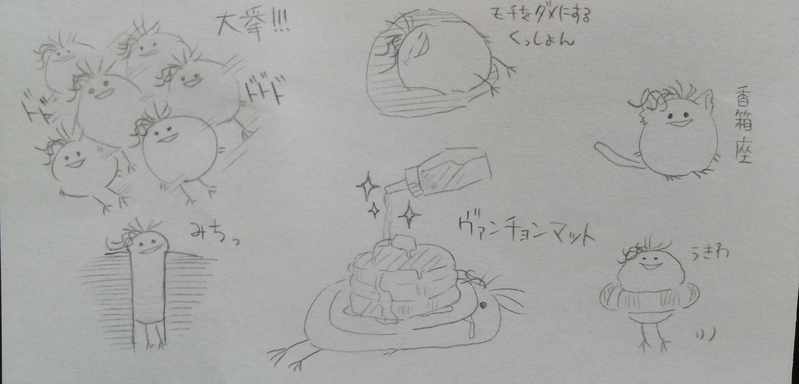 大挙!!!
ドド
ドドド
モチをダメにする
くっしょん
香箱座
みちっ
ヴァンチョンマット
うきわ